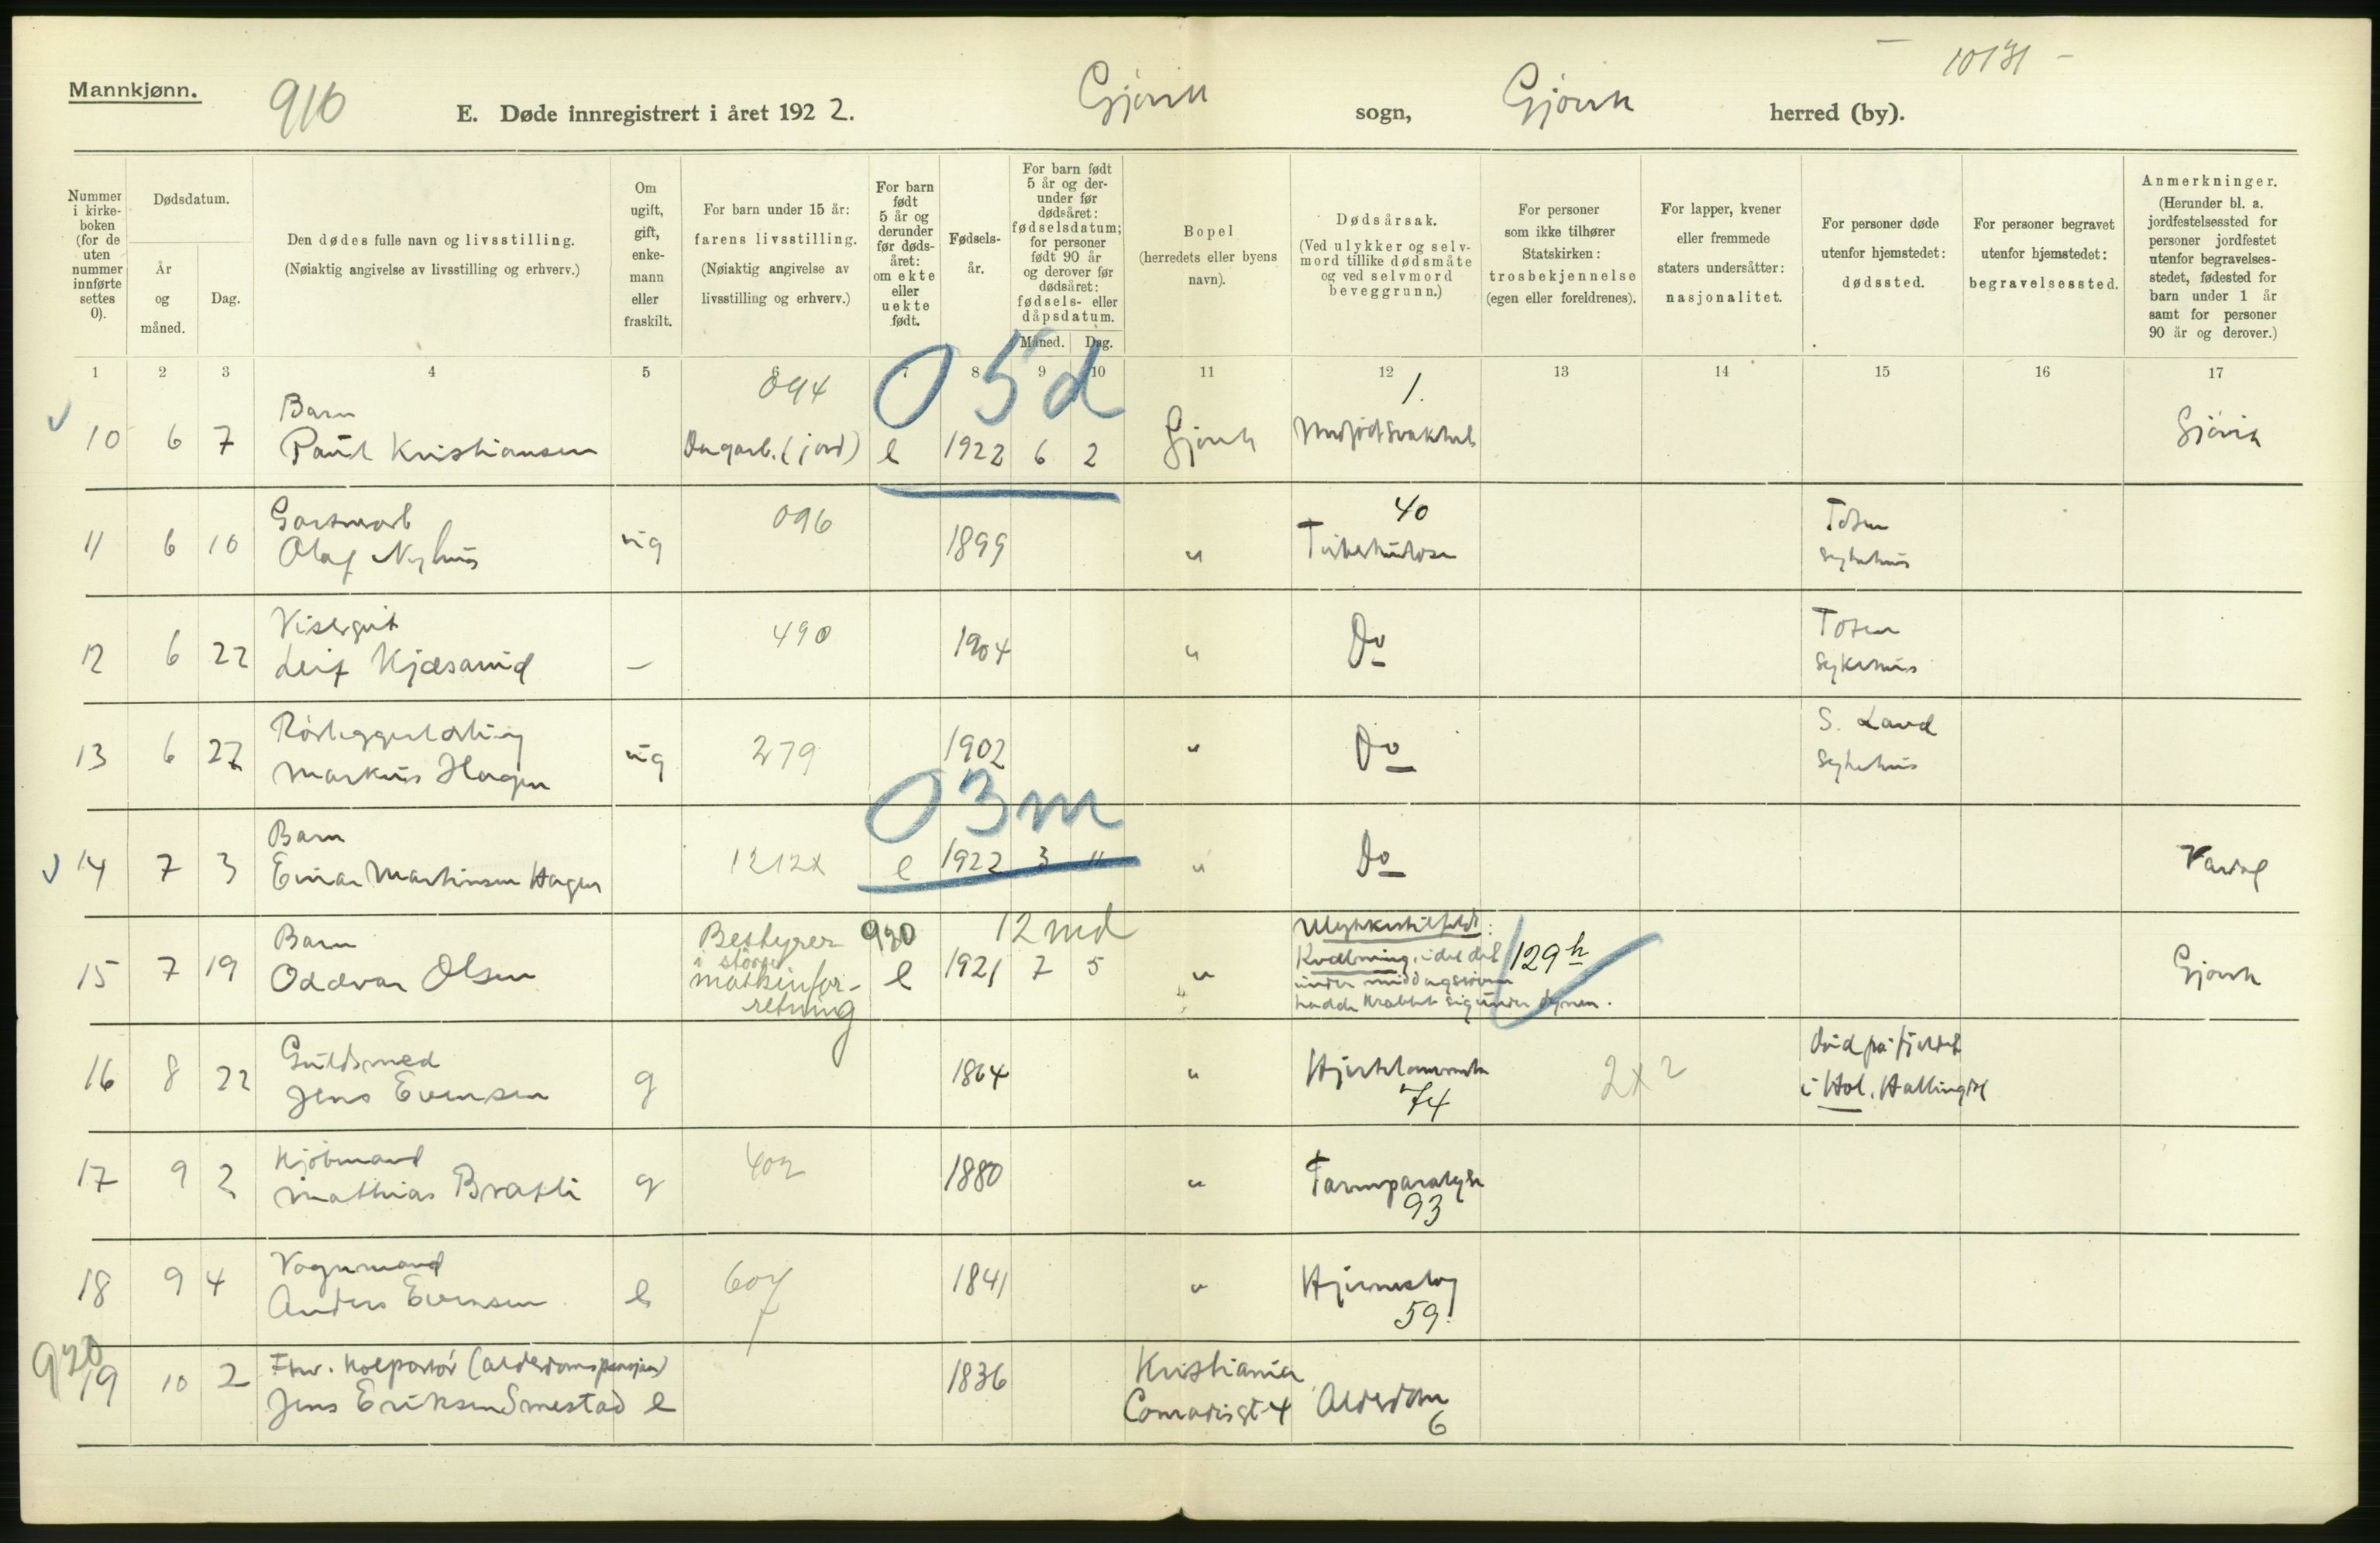 Mannkjønn.
910
E. Døde innregistrert i året 1922.
Gjövik sogn, Gjövik herred (by).
10131
Nummer i kirkeboken (for de uten nummer innførte settes 0).
Dødsdatum.
År og måned.
Dag.
Den dødes fulle navn og livsstilling.
(Nøiaktig angivelse av livsstilling og erhverv.)
Om ugift, gift, enkemann eller fraskilt.
For barn under 15 år: farens livsstilling. (Nøiaktig angivelse av livsstilling og erhverv.)
For barn født 5 år og derunder før dødsåret: om ekte eller uekte født.
Fødselsår.
For barn født 5 år og derunder før dødsåret: fødselsdatum; for personer født 90 år og derover før dødsåret: fødsels- eller dåpsdatum.
Måned. Dag.
Bopel (herredets eller byens navn).
Dødsårsak. (Ved ulykker og selvmord tillike dødsmåte og ved selvmord beveggrunn.)
For personer som ikke tilhører Statskirken: trosbekjennelse (egen eller foreldrenes).
For lapper, kvener eller fremmede staters undersåtter: nasjonalitet.
For personer døde utenfor hjemstedet: dødssted.
For personer begravet utenfor hjemstedet: begravelsessted.
Anmerkninger. (Herunder bl. a. jordfestelsessted for personer jordfestet utenfor begravelsesstedet, fødested for barn under 1 år samt for personer 90 år og derover.)
1 2 3 4 5 6 7 8 9 10 11 12 13 14 15 16 17
Barn 094 05d 1.
10 6 7 Paul Kristiansen Dagarb. (jord) e 1922 6 2 Gjövik Gjövik
096 40 Toten
11 6 10 Olaf Nyhus ug 1899 " Tuberkulose sykehus
Visergut 490 Toten
12 6 22 Leif 1904 " Do sykehus
Rörleggerlærling 279 S. Land
13 6 22 Markus Hagen ug 1902 " Do sykehus
Barn 03m
14 7 3 Einar Martinsen Hagen 1212x e 1922 3 11 " Do Vardal
Barn Bestyrer 920 12 md Ulykkestilfelde:
15 7 19 Oddvar Olsen i större matkinforretning e 1921 7 5 " Kvælning, idet det 129h Gjövik
under middagssövn
hadde krabbet sig under dynen.
Guldsmed Död på fjeldet
16 8 22 Jens Evensen g 1864 " Hjertelammelse 74 2x2 i Hol, Hallingdal
Kjöbmand 402
17 9 2 Mathias Bratli g 1880 " Tarmparalyse 93
Vognmand 607
18 9 4 Anders Evensen e 1841 " Hjerneslag 59.
920
Fhv. kolportör (alderdomspensjon) Kristiania
19 10 2 Jens Eriksen Smestad e 1836 Conradisgt 4 Alderdom 6